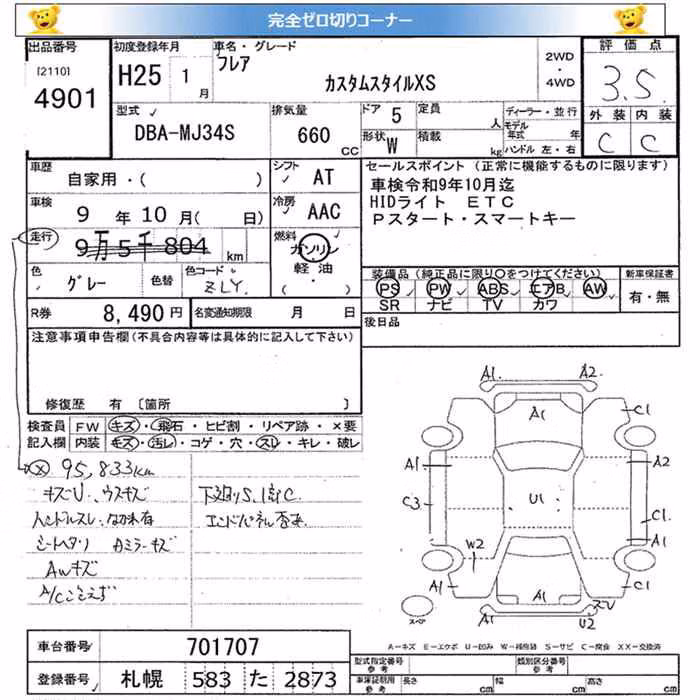 完全ゼロ切りコーナー
出品番号
[2110]
4901
初度登録年月
H25 1月
車名・グレード
フレア
カスタムスタイルXS
2WD
・
4WD
評価点
3.5
外装 内装
C C
型式
DBA-MJ34S
排気量
660 CC
ドア 5
形状 W
定員 人
積載 kg
ディーラー・並行
モデル年式 年
ハンドル 左・右
車歴
自家用・( )
シフト
AT
車検
9年10月( 日)
冷房
AAC
走行
9万5千804 km
燃料
ガソリン
軽油
( ・ )
色
グレー
色替
色コード
ZLY
R券
8,490円
名変通知期限 月 日
セールスポイント(正常に機能するものに限ります)
車検令和9年10月迄
HIDライト ETC
Pスタート・スマートキー
装備品(純正品に限り○をつけてください)
PS PW ABS エアB AW
SR ナビ TV カワ
新車保証書
有・無
後日品
注意事項申告欄(不具合内容等は具体的に記入して下さい)
修復歴 有 〔箇所
検査員記入欄
FW キズ・飛石・ヒビ割・リペア跡・×要
内装 キズ・汚レ・コゲ・穴・スレ・キレ・破レ
× 95,833km
キズU、ウスキズ
ハンドルスレ
シートヘタリ
AWキズ
下廻りS、
エンドパネル
A1 A2
A1
C1
A1 A2
C3 U1 C1
A1
W2
A1 A1 C1
U2
スペア
A-キズ E-エクボ U-凹み W-補修跡 S-サビ C-腐食 XX-交換済
車台番号
701707
登録番号
札幌 583 た 2873
型式指定番号
参考
類別区分番号
参考
車庫証明用
参考
長さ cm
幅 cm
高さ cm